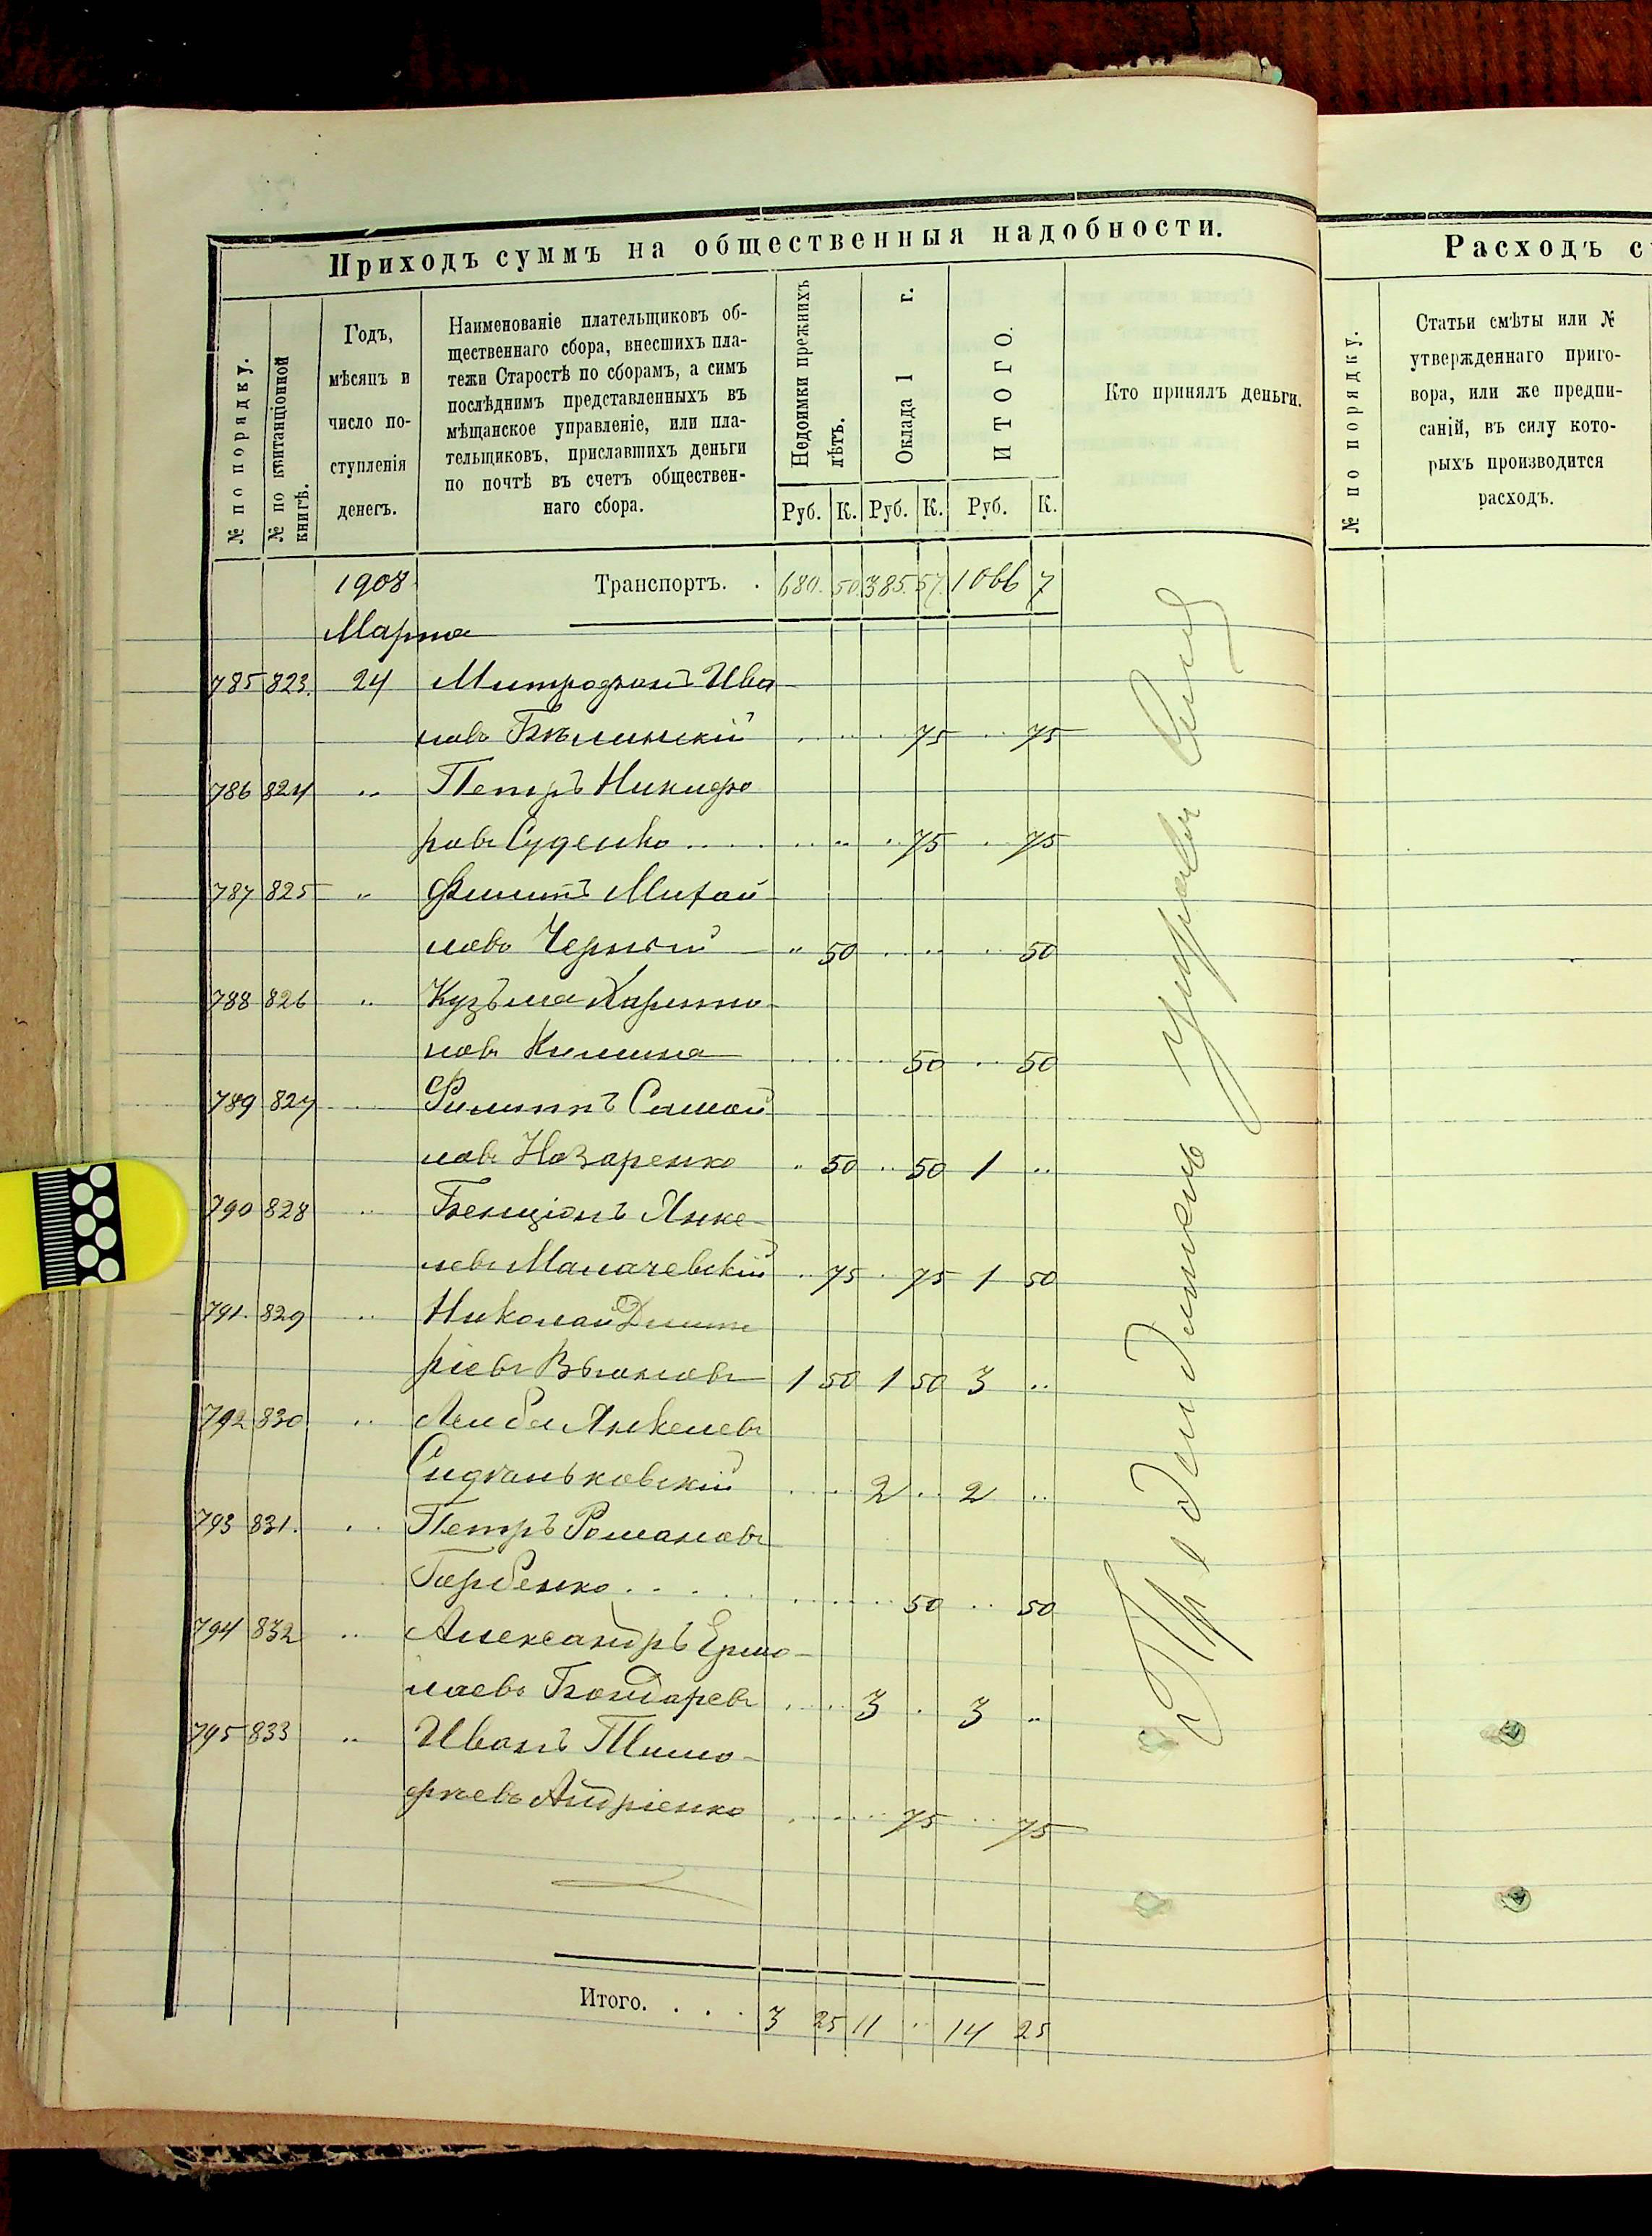 Приходъ суммъ на общественныя надобности.
№ по порядку.
№ по квитанціонной книгѣ.
Годъ,
мѣсяцъ и
число по-
ступленія
денегъ.
Наименованіе плательщиковъ об-
щественнаго сбора, внесшихъ пла-
тежи Старостѣ по сборамъ, а симъ
послѣднимъ представленныхъ въ
мѣщанское управленіе, или пла-
тельщиковъ, приславшихъ деньги
по почтѣ въ счетъ обществен-
наго сбора.
Недоимки прежнихъ лѣтъ.
Оклада 1 г.
ИТОГО.
Кто принялъ деньги.
Руб. К. Руб. К. Руб. К.
1908 Транспортъ. . 680. 50. 385. 57. 1066 7
Марта
785 823. 24 Митрофанъ Ива
новъ Бѣлинскій 75 75
786 824 " Петръ Никифо
ровъ Суденко 75 75
787 825 " Филипъ Михай
ловъ Черный " 50 50
788 826 " Кузьма Харито-
новъ 50 50
789 827 Филиппъ Самой
ловъ Назаренко " 50 50 1 "
790 828 Бенціонъ Янке-
левъ Малачевскій 75 75 1 50
791. 829 Николай Дмит
ріевъ Вьюновъ 1 50 1 50 3 "
792 830 Лейба Янкелевъ
2 2 "
793 831. Петръ Романовъ
Горбенко 50 50
794 832 " Александръ Ермо-
лаевъ Бондаревъ 3 3 "
795 833 " Иванъ Тимо-
фѣевъ Андріенко 75 75
Итого. . . . 3 25 11 " 14 25
Расходъ с
№ по порядку.
Статьи смѣты или №
утвержденнаго приго-
вора, или же предпи-
саній, въ силу кото-
рыхъ производится
расходъ.